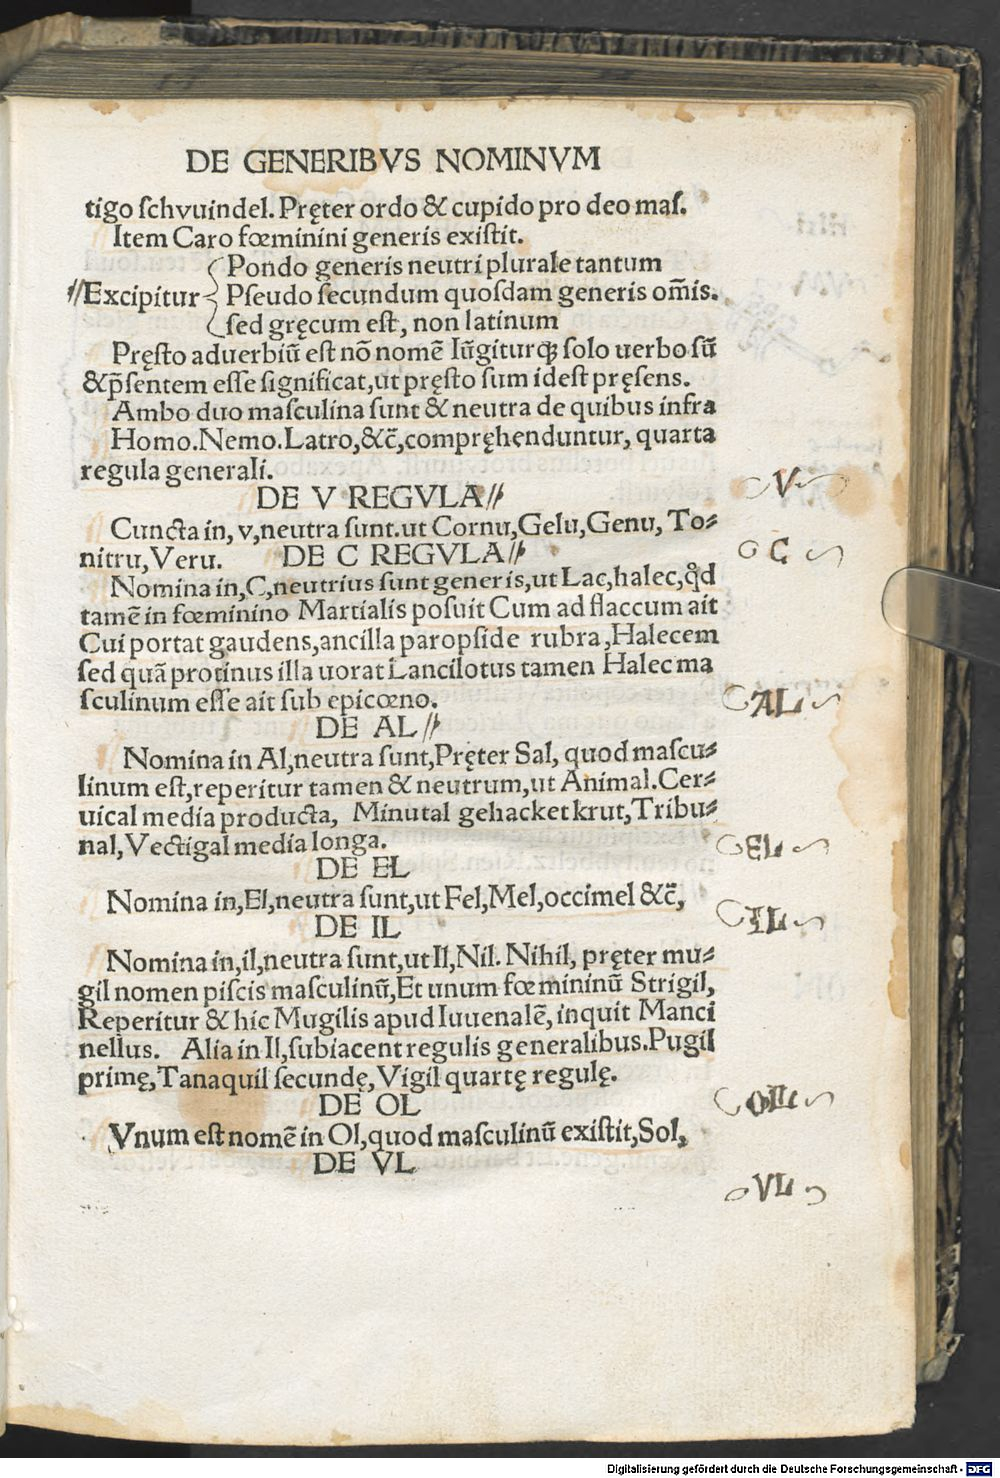 DE GENERIBVS NOMINVM
tigo ſchvuindel. Pręter ordo & cupido pro deo maſ.
Item Caro fœminini generis exiſtit.
Pondo generis neutri plurale tantum
//Excipitur Pſeudo ſecundum quoſdam generis om̄is.
ſed gręcum eſt, non latinum
Pręſto aduerbiū eſt nō nomē Iūgiturqꝫ ſolo uerbo ſū
&p̄ſentem eſſe ſignificat,ut pręſto ſum idest pręſens.
Ambo duo maſculina ſunt & neutra de quibus infra
Homo.Nemo.Latro,&c̄,compręhenduntur, quarta
regula generali.
DE V REGVLA//
V
Cuncta in, v,neutra ſunt.ut Cornu,Gelu,Genu, To⸗
nitru,Veru. DE C REGVLA//
C
Nomina in,C,neutrius ſunt generis,ut Lac,halec,qd̄
tamē in fœminino Martialis poſuit Cum ad flaccum ait
Cui portat gaudens,ancilla paropſide rubra,Halecem
ſed quā protinus illa uorat Lancilotus tamen Halec ma
ſculinum eſſe ait ſub epicœno.
AL
DE AL//
Nomina in Al,neutra ſunt,Pręter Sal, quod maſcu⸗
linum eſt,reperitur tamen & neutrum,ut Animal.Cer⸗
uical media producta, Minutal gehacket krut,Tribu⸗
nal,Vectigal media longa.
EL
DE EL
Nomina in,El,neutra ſunt,ut Fel,Mel,occimel &c̄,
IL
DE IL
Nomina in,il,neutra ſunt,ut Il,Nil. Nihil, pręter mu⸗
gil nomen piſcis maſculinū,Et unum fœmininū Strigil,
Reperitur & hic Mugilis apud Iuuenalē, inquit Manci
nellus. Alia in Il,ſubiacent regulis generalibus.Pugil
primę,Tanaquil ſecundę,Vigil quartę regulę.
DE OL
OL
Vnum eſt nomē in Ol,quod maſculinū exiſtit,Sol,
DE VL
VL
Digitalisierung gefördert durch die Deutsche Forschungsgemeinschaft - DFG